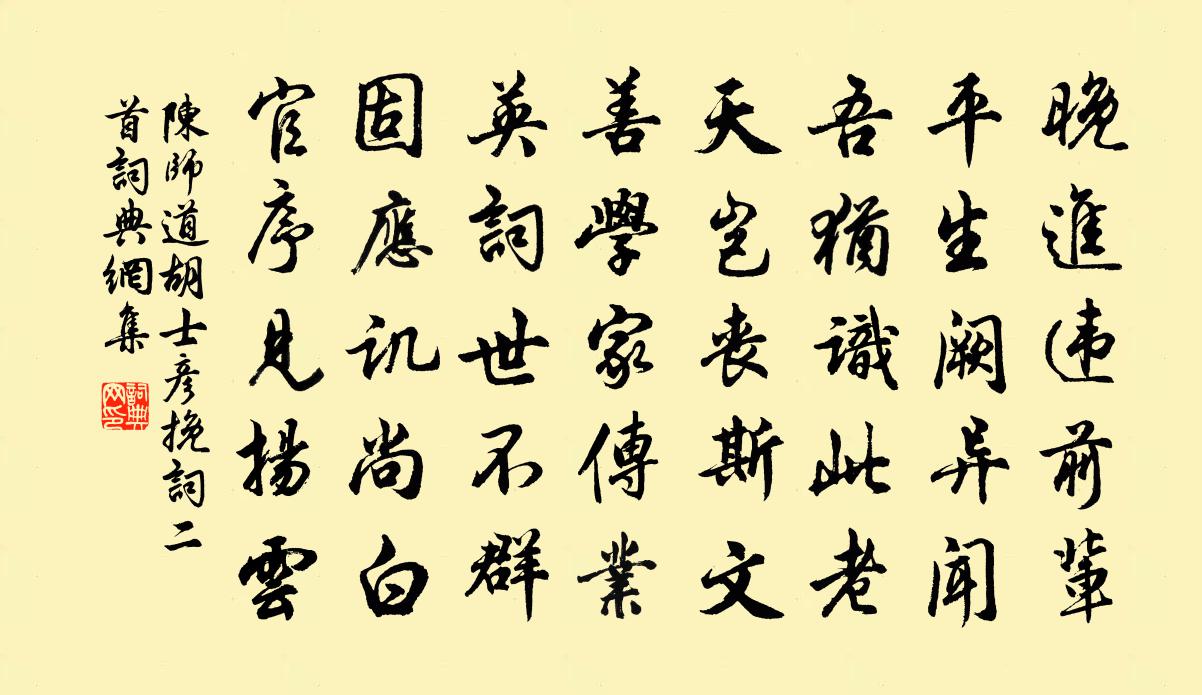 晚進违前輩
平生阙异闻
吾猶識此老
天岂丧斯文
善學家傳業
英詞世不群
固應讥尚白
官序見揚雲
陳師道胡士彦挽詞二
首詞典網集
詞典
网印